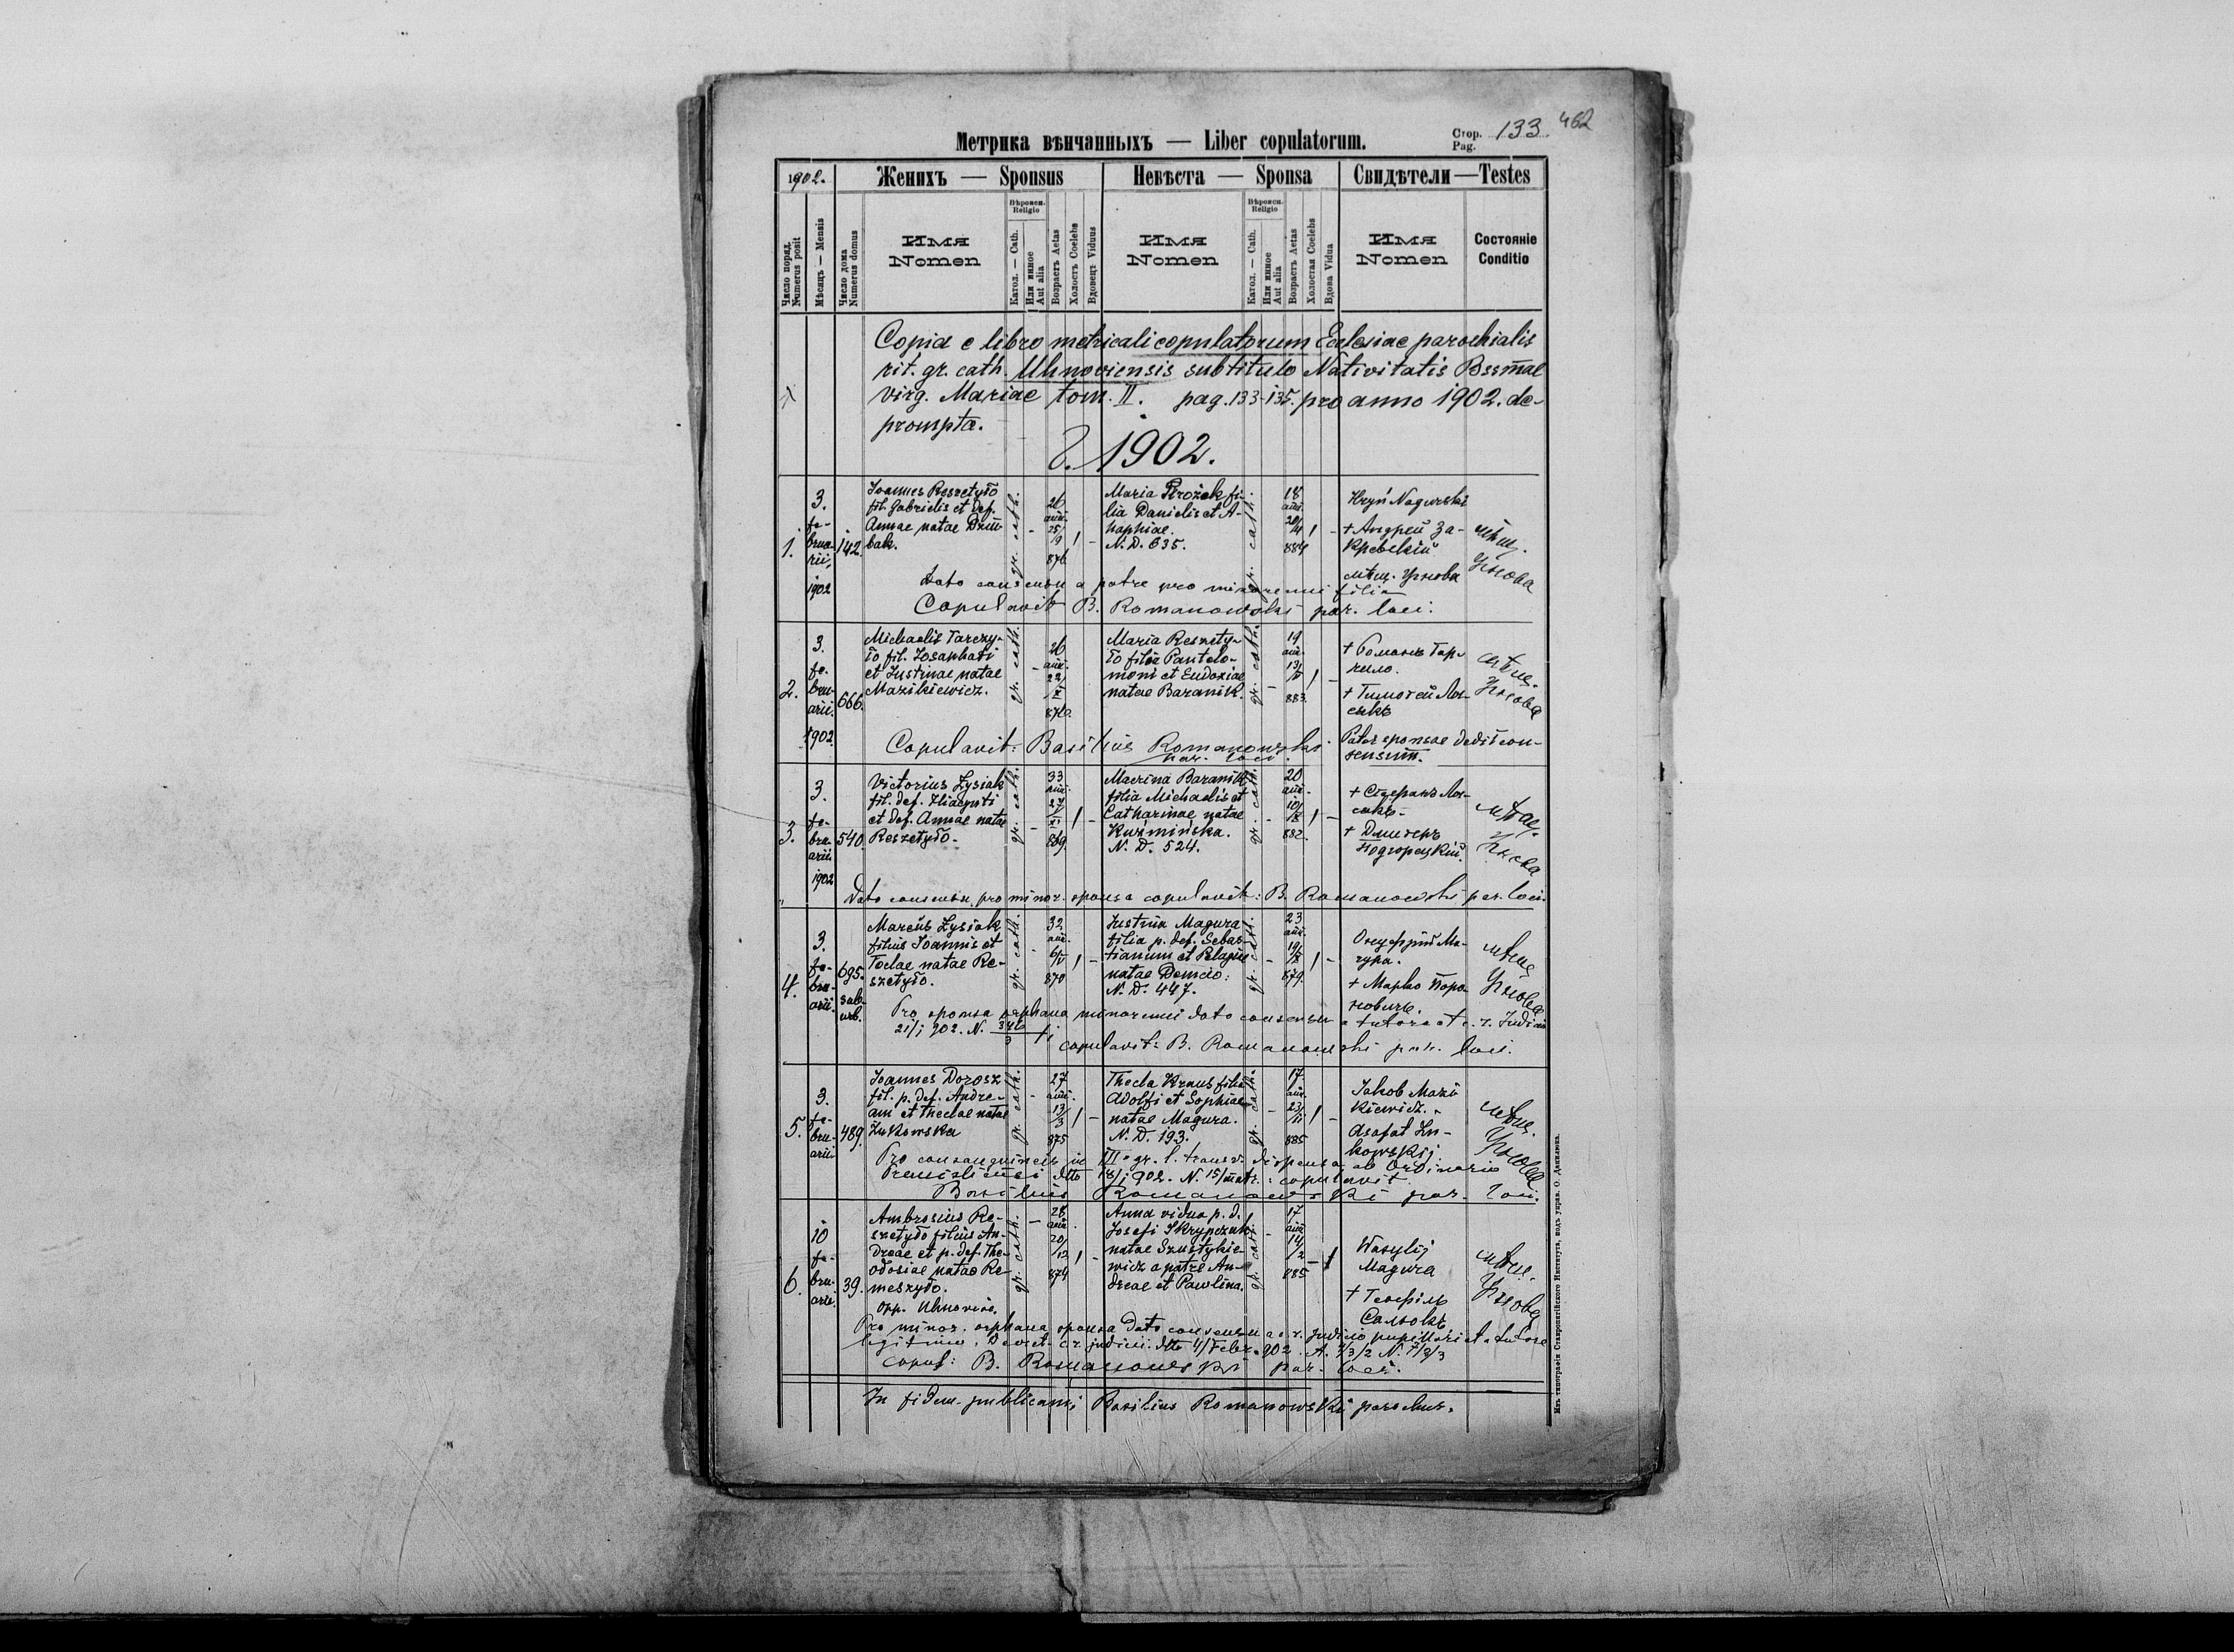 Метрика вѣнчанныхъ — Liber copulatorum.
Стор. Pag. 133. 462
1902.
Женихъ — Sponsus
Невѣста — Sponsa
Свидѣтели — Testes
Число поряд. Numerus posit
Мѣсяцъ — Mensis
Число дома Numerus domus
Имя Nomen
Вѣроисп. Religio
Катол. — Cath.
Или инное Aut alia
Возрастъ Aetas
Холостъ Coelebs
Вдовецъ Viduus
Имя Nomen
Вѣроисп. Religio
Катол. — Cath.
Или инное Aut alia
Возрастъ Aetas
Холостая Coelebs
Вдова Vidua
Имя Nomen
Состояніе Conditio
Copia e libro metricali copulatorum Ecclesiae parochialis
rit. gr. cath. Uhnoviensis sub titulo Nativitatis Bssmae
virg. Mariae tom. II. pag. 133-135. pro anno 1902. de-
prompta.
1902.
1.
3. februarii, 1902
142.
Joannes Reszetyło
fil. Gabrielis et def.
Annae natae Dziu-
bak.
gr. cath.
26 ann. 25/9 876
MariaProżek fi-
lia Danielis et A-
haphiae.
N. D. 635.
gr. cath.
18 ann. 884
Hryń Nagurski
+ Андрей За-
кревскій
мѣщ. Угнова
мѣщ. Угнова
Dato consensu a patre pro minorenni filia
Copulavit B. Romanowski par. loci.
2.
3. februarii. 1902
666.
Michaelis Tarczy-
ło fil. Josaphati
et Justinae natae
Mazikiewicz.
gr. cath.
26 ann. 22/X 876
Maria Reszety-
ło filia Pantele-
moni et Eudoxiae
natae Baranik.
gr. cath.
19 ann. 13/V 883.
+ Романъ Тар-
чило.
+ Тимотей Ля-
сикъ
мѣщ. Угнова
Copulavit: Basilius Romanowski par. loci.
Pater sponsae dedit con-
sensum.
3.
3. februarii 1902
540.
Victorius Łysiak
fil. def. Hiacynti
et def. Annae natae
Reszetyło.
gr. cath.
33 ann. 27/XI 869.
Macrina Baranik
filia Michaelis et
Catharinae natae
Kuźmińska.
N. D. 524.
gr. cath.
20 ann. 882.
+ Стефанъ Ля-
сикъ.
+ Дмитеръ
Подгорецкій.
мѣщ. Угнова
Dato consensu pro minor. sponsa copulavit: B. Romanowski par. loci.
4.
3. februarii.
695. sub-urb.
Marcus Łysiak
filius Joannis et
Teclae natae Re-
szetyło.
gr. cath.
32 ann. 6/V 870
Justina Magura
filia p. def. Sebas-
tianum et Pelagiae
natae Demcio.
N. D. 447.
gr. cath.
23 ann. 879.
Онуфрій Ма-
гура.
+ Марко Поро-
новичъ.
мѣщ. Угнова
Pro sponsa orphana minorenni dato consensu a tutore et c. r. Judicio
21/1 902. N.
copulavit: B. Romanowski par. loci.
5.
3. februarii.
489.
Joannes Dorosz
fil. p. def. Andre-
am et Theclae natae
Żukowska
gr. cath.
27 ann. 13/3 875
Thecla Kraus filia
Adolfi et Sophiae
natae Magura.
N. D. 193.
gr. cath.
17 ann. 23/11 885
Jakob Mazi
kiewicz.
Asafat Żu-
kowskij
мѣщ. Угнова
Pro consanguineis in III gr. l. transv. dispensa ab Ordinario
Premisliensi dtto 18/1 902. N. 15/matr.: copulavit
Basilius Romanowski par. loci.
6.
10 februarii.
39.
Ambrosius Re-
szetyło filius An-
dreae et p. def. The-
odosiae natae Re-
meszyło.
opp. Uhnoviae.
gr. cath.
28 ann. 20/12 874
Anna vidua p. d.
Josefi Skrypczuk
natae Szustykie-
wicz a patre An-
dreae et Pawlina.
gr. cath.
17 ann. 14/2 885
Wasylij
Magura
+ Теофіль
Сальокъ
мѣщ. Угнова
Pro minor. orphana sponsa dato consensu a c. r. judicio pupillari et a tutore
legitimo. Decret. c. r. judicii. dtto 4/Febr. 902. A. 7/3/2 N. 7/2/3
Copul: B. Romanowski par. loci.
In fidem publicam; Basilius Romanowskij parochus.
Изъ типографіи Ставропигійского Института, подъ управ. О. Данилюка.